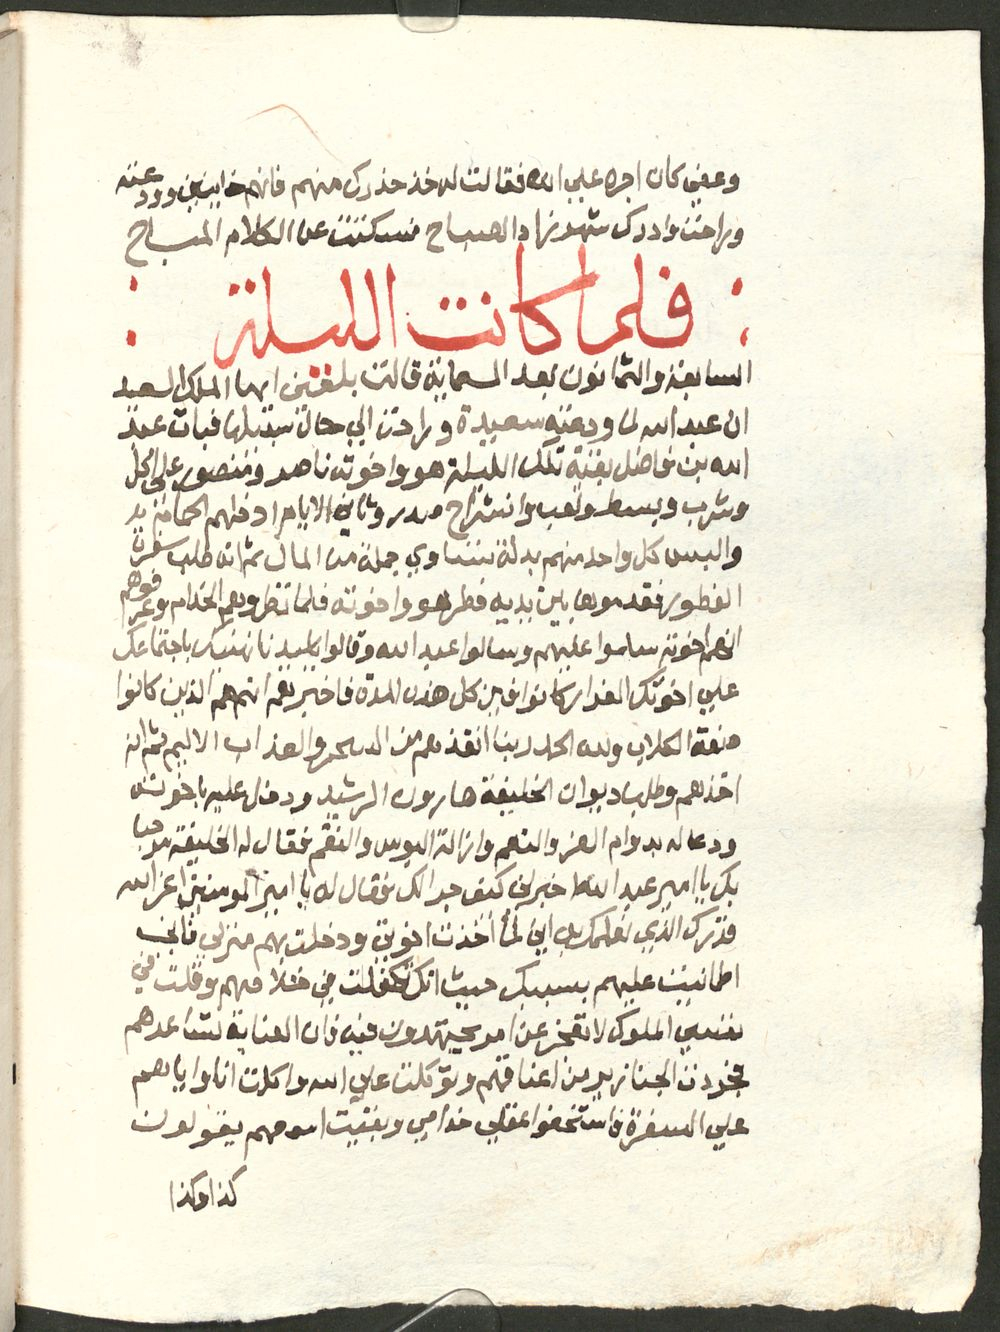 وعفي كان اجره علي الله فقالت له خذ حذرك منهم فانهم خاينين وودعته
وراحت وادرك شهرزاد الصباح فسكتت عن الكلام المباح
فلما كانت الليلة
السابعة والثمانون بعد السبعماية قالت بلغني ايها الملك السعيد
ان عبد الله لما ودعته سعيدة وراحت الي حال سبيلها فبات عبد
الله بن فاضل بقية تلك الليلة هو واخوته ناصر ومنصور علي اكل
وشرب وبسط ولعب وانشراح صدر وثاني الايام ادخلهم الحمام
والبس كل واحد منهم بدلة تساوي جملة من المال ثم انه طلب سفرة
الفطور فقدموها بين يديه فطر هو واخوته فلما نظروهم الخدام وعرفوهم
انهم اخوته سلموا عليهم وسالوا عبد الله وقالوا يا سيدنا نهنيك باجتماعك
علي اخوتك العزاز كانوا فين كل هذه المدة فاخبرهم انهم هم الذين كانوا
صفة الكلاب ولله الحمد ربنا انقذهم من السحر والعذاب الاليم ثم انه
اخذهم وطلب ديوان الخليفة هارون الرشيد ودخل عليه باخوته
ودعا له بدوام العز والنعم وازالة البوس والنقم فقال له الخليفة مرحبا
بك يا امير عبد الله خبرني كيف جرالك فقال له يا امير المومنين اعز الله
قدرك الذي نعلمك به اني لما اخذت اخوتي ودخلت بهم منزلي فاني
اطمانيت عليهم بسببك حيث انك تكفلت في خلاصهم وقلت في
نفسي الملوك لا تعجز عن امر يجتهدون فيه فان العناية تساعدهم
فجردت الجنازير من اعناقهم وتوكلت علي الله واكلت انا واياهم
علي السفرة فاستخفوا عقلي خدامي وبقيت اسمعهم يقولون
كذا وكذا